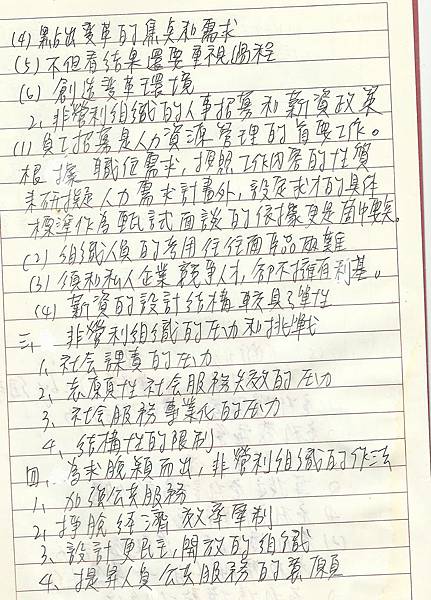 (4) 點出變革的焦點和需求
(5) 不但看結果還要重視過程
(6) 創造變革環境
2、非營利組織的人事招募和薪資政策
(1) 員工招募是人力資源管理的首要工作。
根據職位需求,按照工作內容的性質
來研擬人力需求計畫外,設定求才的具体
標準作為甄試面談的依據更是箇中要矣。
(2) 組織人員的考用往往面臨兩難
(3) 須和私人企業競爭人才,卻不擁有利基。
(4) 薪資的設計結構較具彈性
三、非營利組織的压力和挑戰
1、社会課責的压力
2、志願性社会服務失效的压力
3、社会服務專業化的压力
4、結構性的限制
四、為求脫穎而出,非營利組織的作法
1、加強公共服務
2、掙脫經濟效率牽制
3、設計更民主,開放的組織
4、提昇人員公共服務的意願